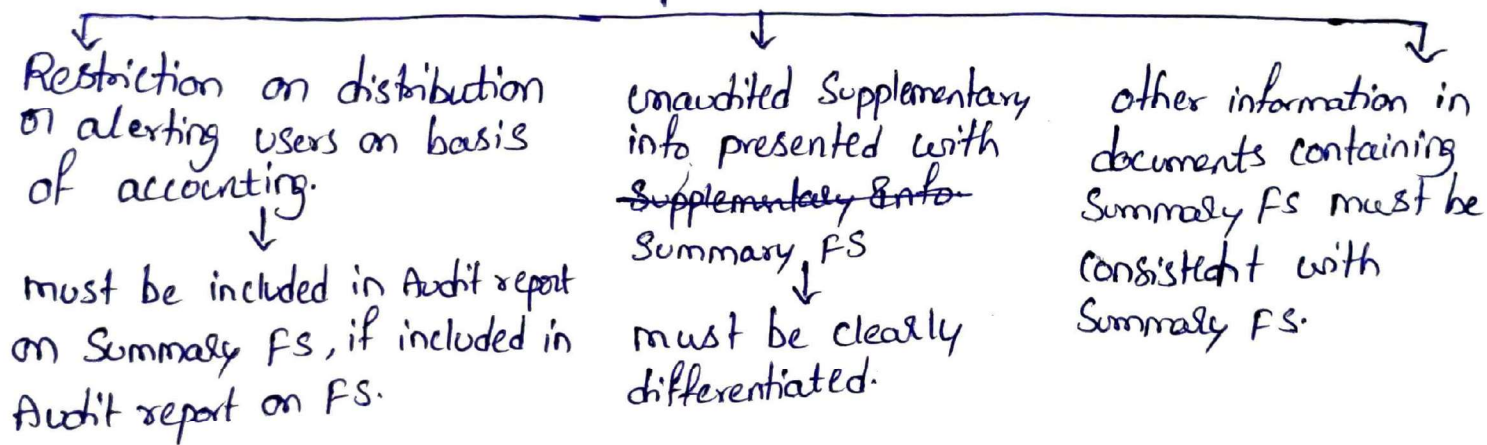 Restriction on distribution
or alerting users on basis
of accounting.
must be included in Audit report
on Summary FS, if included in
Audit report on FS.
unaudited Supplementary
info presented with
Supplementary Info.
Summary FS
must be clearly
differentiated.
other information in
documents containing
Summary FS must be
consistent with
Summary FS.